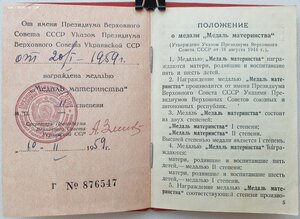 От имени Президиума Верховного
Совета СССР Указом Президиума
Верховного Совета Украинской ССР
от 20/I - 1959 г.
награждена медалью
„Медаль материнства"
II степени
10 II 1959 г.
Г № 876547
ПОЛОЖЕНИЕ
о медали „Медаль материнства"
(Утверждено Указом Президиума Верховного
СССР от 18 августа 1944 г.)
1. Медалью „Медаль материнства" на-
граждаются матери, родившие и воспитавшие
пять и шесть детей.
2. Награждение медалью „Медаль мате-
ринства" производится от имени Президиума
Верховного Совета СССР Указами Прези-
диумов Верховных Советов союзных и авто-
номных республик.
3. „Медаль материнства" состоит из двух
степеней:
„Медаль материнства" I степени;
„Медаль материнства" II степени.
Высшей степенью медали является I степень.
4. Награждаются:
матери, родившие и воспитавшие пять
детей,— медалью II степени;
матери, родившие и воспитавшие шесть
детей,— медалью I степени.
5. Награждение медалью „Медаль мате-
ринства" соответствующей степени произво-
5